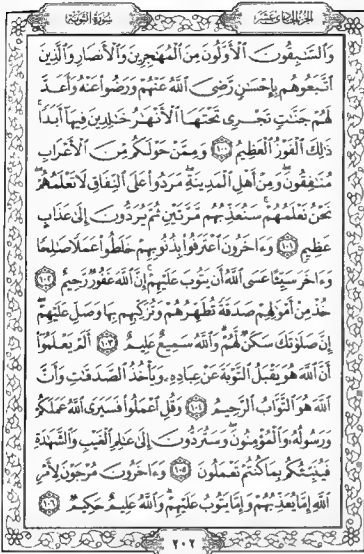 الجُزْءُ الحَادِي عَشَرَ
سُورَةُ التَّوْبَةِ
وَٱلسَّٰبِقُونَ ٱلْأَوَّلُونَ مِنَ ٱلْمُهَٰجِرِينَ وَٱلْأَنصَارِ وَٱلَّذِينَ
ٱتَّبَعُوهُم بِإِحْسَٰنٍ رَّضِيَ ٱللَّهُ عَنْهُمْ وَرَضُوا۟ عَنْهُ وَأَعَدَّ
لَهُمْ جَنَّٰتٍ تَجْرِي تَحْتَهَا ٱلْأَنْهَٰرُ خَٰلِدِينَ فِيهَآ أَبَدًا ۚ
ذَٰلِكَ ٱلْفَوْزُ ٱلْعَظِيمُ ١٠٠ وَمِمَّنْ حَوْلَكُم مِّنَ ٱلْأَعْرَابِ
مُنَٰفِقُونَ ۖ وَمِنْ أَهْلِ ٱلْمَدِينَةِ ۖ مَرَدُوا۟ عَلَى ٱلنِّفَاقِ لَا تَعْلَمُهُمْ ۖ
نَحْنُ نَعْلَمُهُمْ ۚ سَنُعَذِّبُهُم مَّرَّتَيْنِ ثُمَّ يُرَدُّونَ إِلَىٰ عَذَابٍ
عَظِيمٍ ١٠١ وَءَاخَرُونَ ٱعْتَرَفُوا۟ بِذُنُوبِهِمْ خَلَطُوا۟ عَمَلًا صَٰلِحًا
وَءَاخَرَ سَيِّئًا عَسَى ٱللَّهُ أَن يَتُوبَ عَلَيْهِمْ ۚ إِنَّ ٱللَّهَ غَفُورٌ رَّحِيمٌ ١٠٢
خُذْ مِنْ أَمْوَٰلِهِمْ صَدَقَةً تُطَهِّرُهُمْ وَتُزَكِّيهِم بِهَا وَصَلِّ عَلَيْهِمْ ۖ
إِنَّ صَلَوٰتَكَ سَكَنٌ لَّهُمْ ۗ وَٱللَّهُ سَمِيعٌ عَلِيمٌ ١٠٣ أَلَمْ يَعْلَمُوٓا۟
أَنَّ ٱللَّهَ هُوَ يَقْبَلُ ٱلتَّوْبَةَ عَنْ عِبَادِهِۦ وَيَأْخُذُ ٱلصَّدَقَٰتِ وَأَنَّ
ٱللَّهَ هُوَ ٱلتَّوَّابُ ٱلرَّحِيمُ ١٠٤ وَقُلِ ٱعْمَلُوا۟ فَسَيَرَى ٱللَّهُ عَمَلَكُمْ
وَرَسُولُهُۥ وَٱلْمُؤْمِنُونَ ۖ وَسَتُرَدُّونَ إِلَىٰ عَٰلِمِ ٱلْغَيْبِ وَٱلشَّهَٰدَةِ
فَيُنَبِّئُكُم بِمَا كُنتُمْ تَعْمَلُونَ ١٠٥ وَءَاخَرُونَ مُرْجَوْنَ لِأَمْرِ
ٱللَّهِ إِمَّا يُعَذِّبُهُمْ وَإِمَّا يَتُوبُ عَلَيْهِمْ ۗ وَٱللَّهُ عَلِيمٌ حَكِيمٌ ١٠٦
٢٠٢